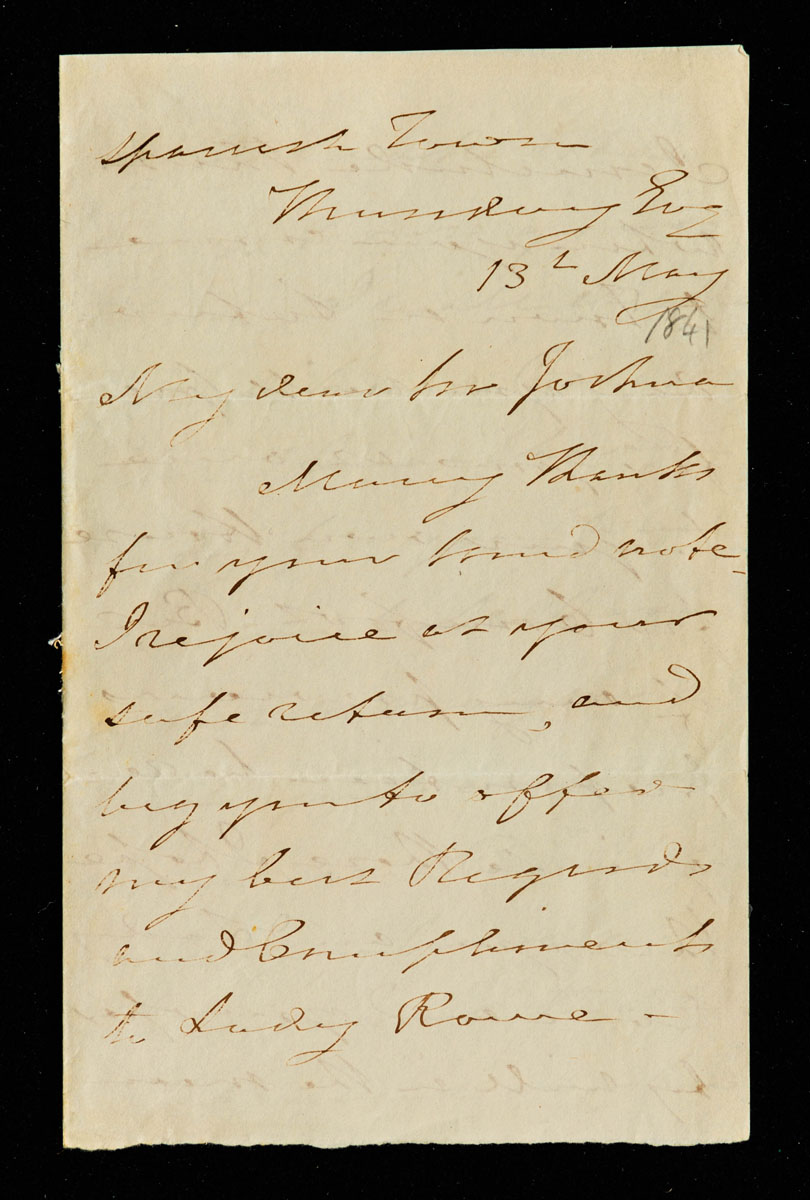 Spanish Town
Thursday Evg
13th May
1841
My dear Sir Joshua
Many Thanks
for your kind note –
I rejoice at your
safe return, and
beg you to offer
my best Regards
and Compliments
to Lady Rowe –